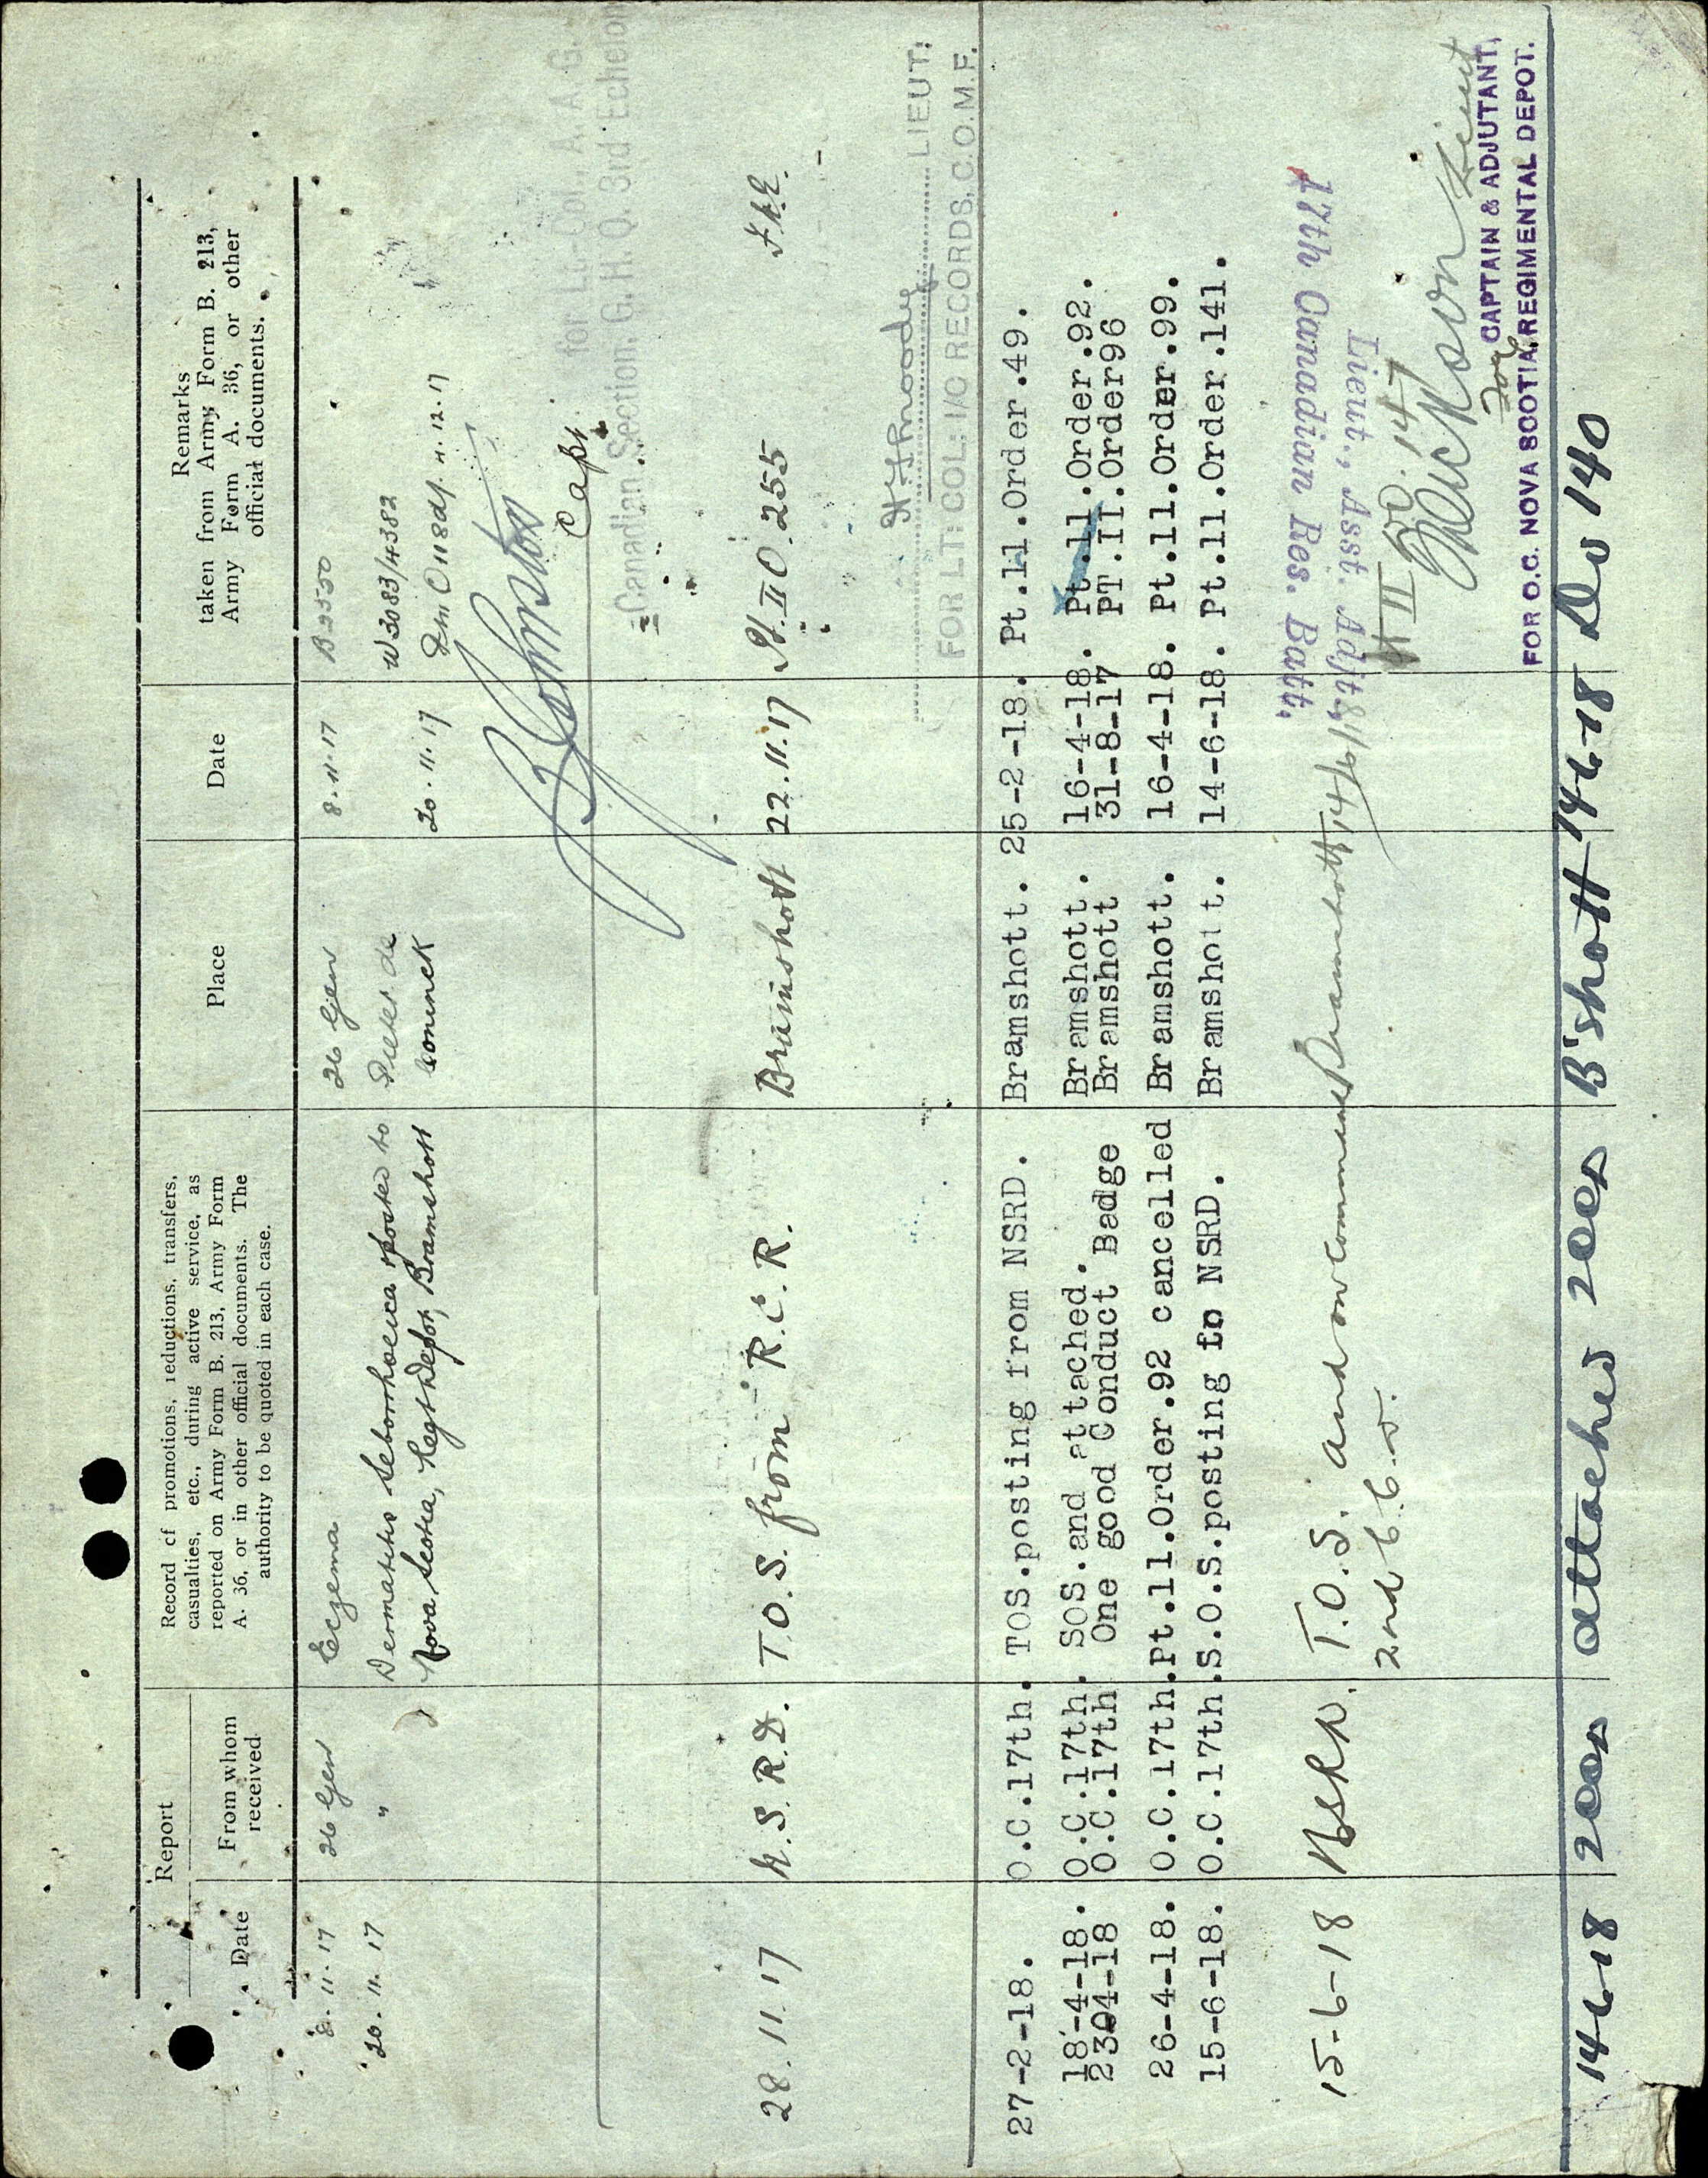 Report
Date
From whom
received
Record of promotions, reductions, transfers,
casualties, etc., during active service, as
reported on Army Form B. 213, Army Form
A. 36, or in other official documents. The
authority to be quoted in each case.
Place
Date
Remarks
taken from Army Form B. 213,
Army Form A. 36, or other
official documents.
8.11.17 26 Gen Eczema 26 Gen 8.11.17 B3500
20.11.17 " Dermatitis Seborrhoeica posted to
Nova Scotia, Regt Depot, Bramshott
Pieter de
Coninck
20.11.17
W3083/4382
4.12.17
Capt
for Lt.-Col., A. A. G.
Canadian Section, G. H. Q. 3rd Echelon
28.11.17 N.S.R.D. T.O.S. from R.C.R. Bramshott 22.11.17 Pt. II O. 255
LIEUT:
FOR LT: COL: I/C RECORDS, C.O.M.F.
27-2-18. O.C.17th. TOS.posting from NSRD. Bramshott. 25-2-18. Pt.11.Order.49.
18-4-18. O.C.17th. SOS.and attached. Bramshott. 16-4-18. Pt.11.Order.92.
2304-18 O.C.17th One good Conduct Badge Bramshott 31-8-17 PT.II.Order96
26-4-18. O.C.17th.Pt.11.Order.92 cancelled Bramshott. 16-4-18. Pt.11.Order.99.
15-6-18. O.C.17th.S.O.S.posting to NSRD. Bramshott. 14-6-18. Pt.11.Order.141.
Lieut., Asst. Adjt.,
17th Canadian Res. Batt.
15-6-18 NSRD. T.O.S. and on command Bramshott 14/6/18 Pt II DO. 147
2nd C.C.D.
Lieut
For CAPTAIN & ADJUTANT,
FOR O.C. NOVA SCOTIA REGIMENTAL DEPOT.
14-6-18 2CCD attached 2CCD B'shott 14-6-18 Do 140